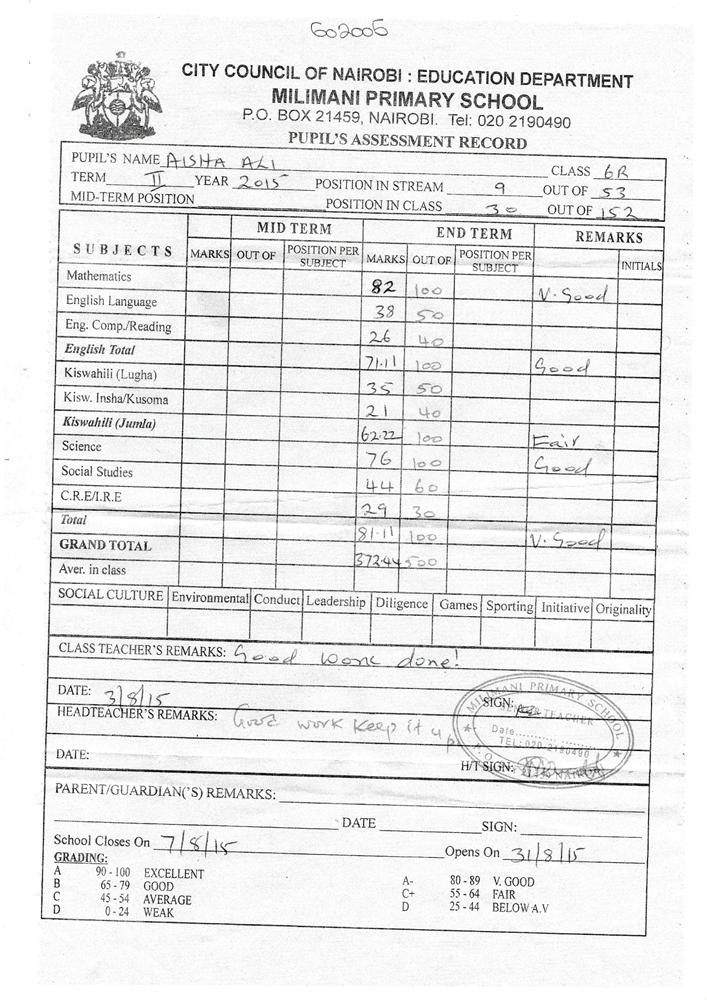 602006
CITY COUNCIL OF NAIROBI : EDUCATION DEPARTMENT
MILIMANI PRIMARY SCHOOL
P.O. BOX 21459, NAIROBI. Tel: 020 2190490
PUPIL'S ASSESSMENT RECORD
PUPIL'S NAME AISHA ALI CLASS 6R
TERM II YEAR 2015 POSITION IN STREAM 9 OUT OF 53
MID-TERM POSITION POSITION IN CLASS 30 OUT OF 152
SUBJECTS MID TERM END TERM REMARKS
MARKS OUT OF POSITION PER SUBJECT MARKS OUT OF POSITION PER SUBJECT INITIALS
Mathematics 82 100 V. Good
English Language 38 50
Eng. Comp./Reading 26 40
English Total 71.11 100 Good
Kiswahili (Lugha) 35 50
Kisw. Insha/Kusoma 21 40
Kiswahili (Jumla) 62.22 100 Fair
Science 76 100 Good
Social Studies 44 60
C.R.E/I.R.E 29 30
Total 81.11 100 V. Good
GRAND TOTAL 372.44 500
Aver. in class
SOCIAL CULTURE Environmental Conduct Leadership Diligence Games Sporting Initiative Originality
CLASS TEACHER'S REMARKS: Good work done!
DATE: 3/8/15 SIGN:
HEADTEACHER'S REMARKS: Good work keep it up
MILIMANI PRIMARY SCHOOL
TEACHER
Date
TEL: 020 2190490
DATE: H/T SIGN:
PARENT/GUARDIAN('S) REMARKS:
DATE SIGN:
School Closes On 7/8/15 Opens On 31/8/15
GRADING:
A 90 - 100 EXCELLENT A- 80 - 89 V. GOOD
B 65 - 79 GOOD C+ 55 - 64 FAIR
C 45 - 54 AVERAGE D 25 - 44 BELOW A.V
D 0 - 24 WEAK